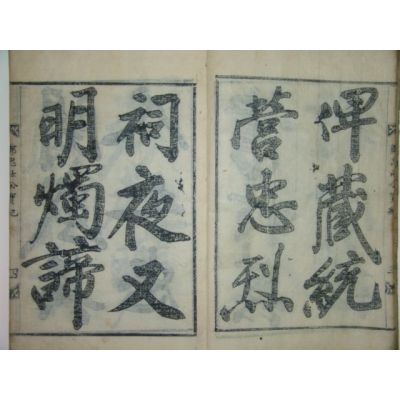 俾蔵統
營忠烈
祠夜又
明燭諦